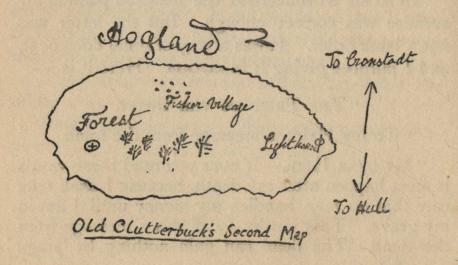 Hogland
To Cronstadt
Fisher Village
Forest
Lighthouse
To Hull
Old Clutterbuck's Second Map